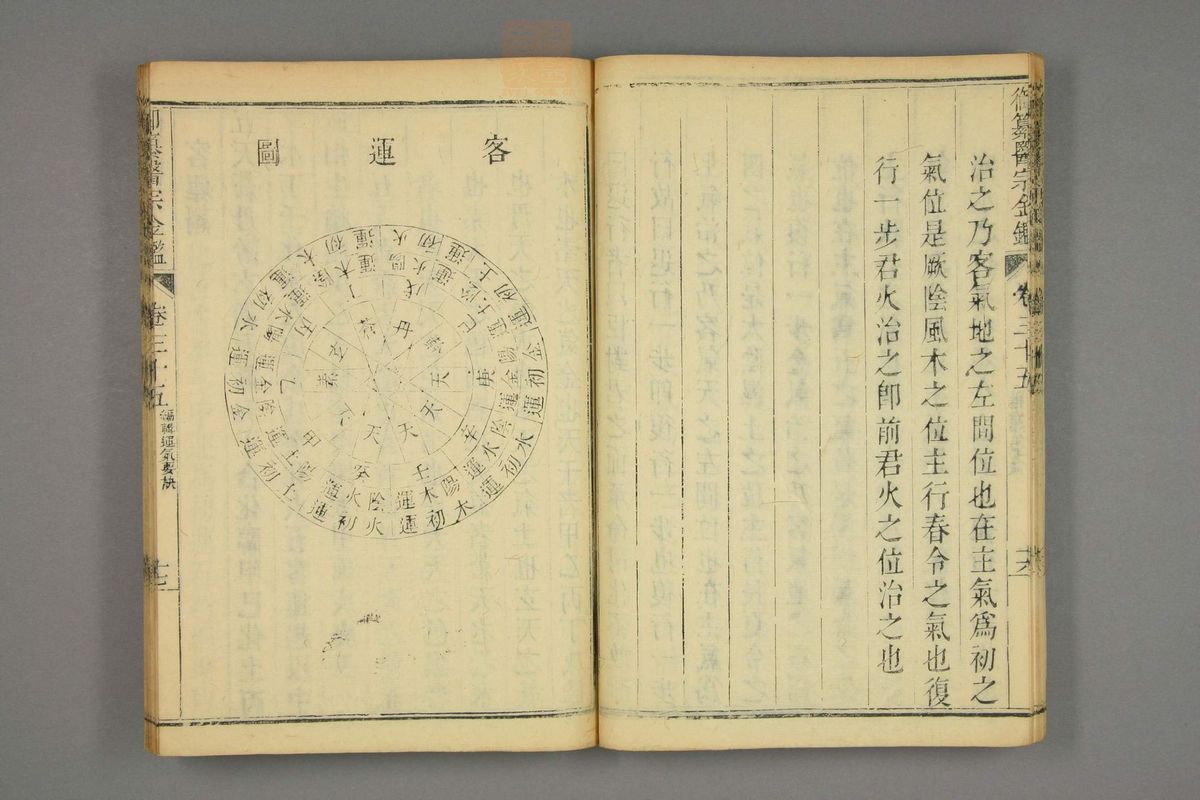 御纂醫宗金鑑
卷三十五
十六
治之乃客氣地之左間位也在主氣爲初之
氣位是厥陰風木之位主行春令之氣也復
行一步君火治之卽前君火之位治之也
客運圖
火初運
土初運
金初運
水初運
木初運
火初運
土初運
金初運
水初運
木初運
陽火運
陰土運
陽金運
陰水運
陽木運
陰火運
陽土運
陰金運
陽水運
陰木運
戊
己
庚
辛
壬
癸
甲
乙
丙
丁
丑
天
天
天
天
御纂醫宗金鑑
卷三十五
編輯運氣要訣
十七